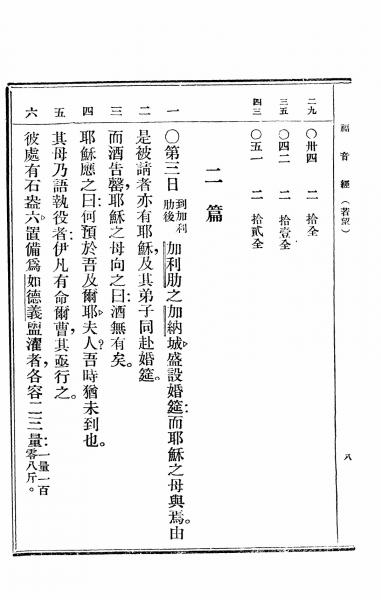 福音經（若望） 八
二九 〇卅四 二 拾全
三五 〇四二 二 拾壹全
四三 〇五一 二 拾貳全
二篇
一 〇第三日到加利肋後加利肋之加納城▷盛設婚筵:而耶穌之母與焉。由
二 是被請者亦有耶穌,及其弟子同赴婚筵。
三 而酒告罄,耶穌之母向之曰:酒無有矣。
四 耶穌應之曰:何預於吾及爾耶▷夫人?吾時猶未到也。
五 其母乃語執役者:伊凡有命爾曹,其亟行之。
六 彼處有石盎六▷置備爲如德義盥濯者,各容二三量:一量一百零八斤。